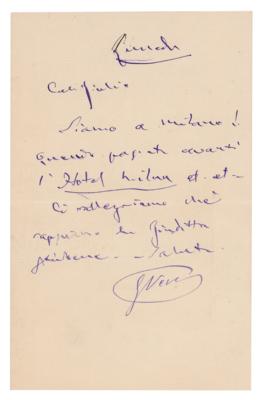 Lunedi
Caro Giulio
Siamo a Milano!
Quando passate avanti
l'Hotel Milan et. et -
Ci rallegriamo che
sappiamo la Giuditta
- Saluti
GVerdi